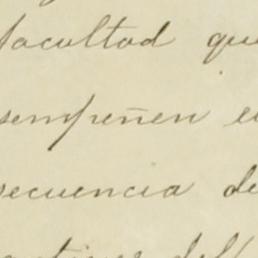 facultad que
sempeñen e
secuencia de
del